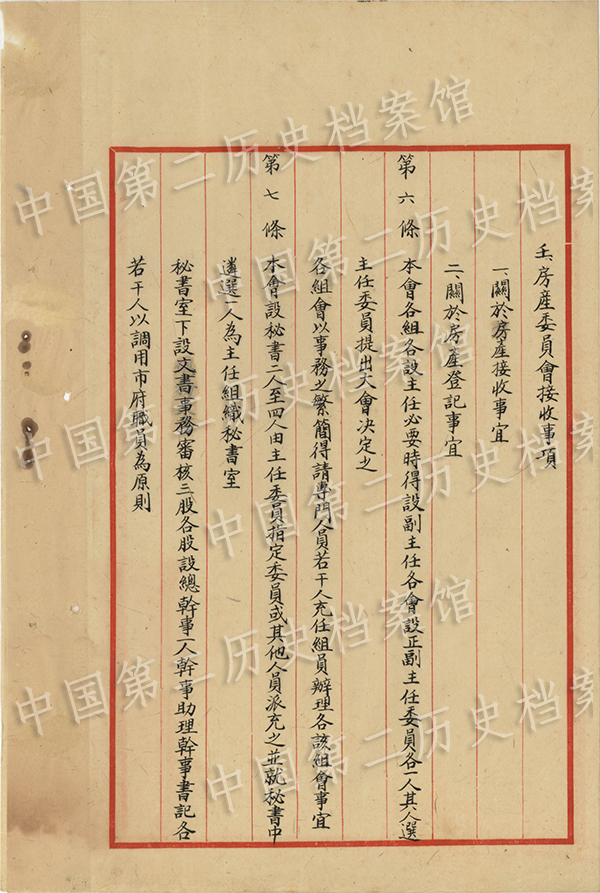 壬、房産委員會接收事項
一、關於房産接收事宜
二、關於房産登記事宜
第六條 本會各組各設主任必要時得設副主任各會設正副主任委員各一人其人選
主任委員提出大會决定之
各組會以事務之繁簡得請專門人員若干人充任組員辦理各該組會事宜
第七條 本會設秘書二人至四人由主任委員指定委員或其他人員派充之並就秘書中
遴選一人為主任組織秘書室
秘書室下設文書事務審核三股各股設總幹事一人幹事助理幹事書記各
若干人以調用市府職員為原則
中国第二历史档案馆
中国第二历史档案馆
中国第二历史档案馆
中国第二历史档案馆
中国第二历史档案馆
中国第二历史档案馆